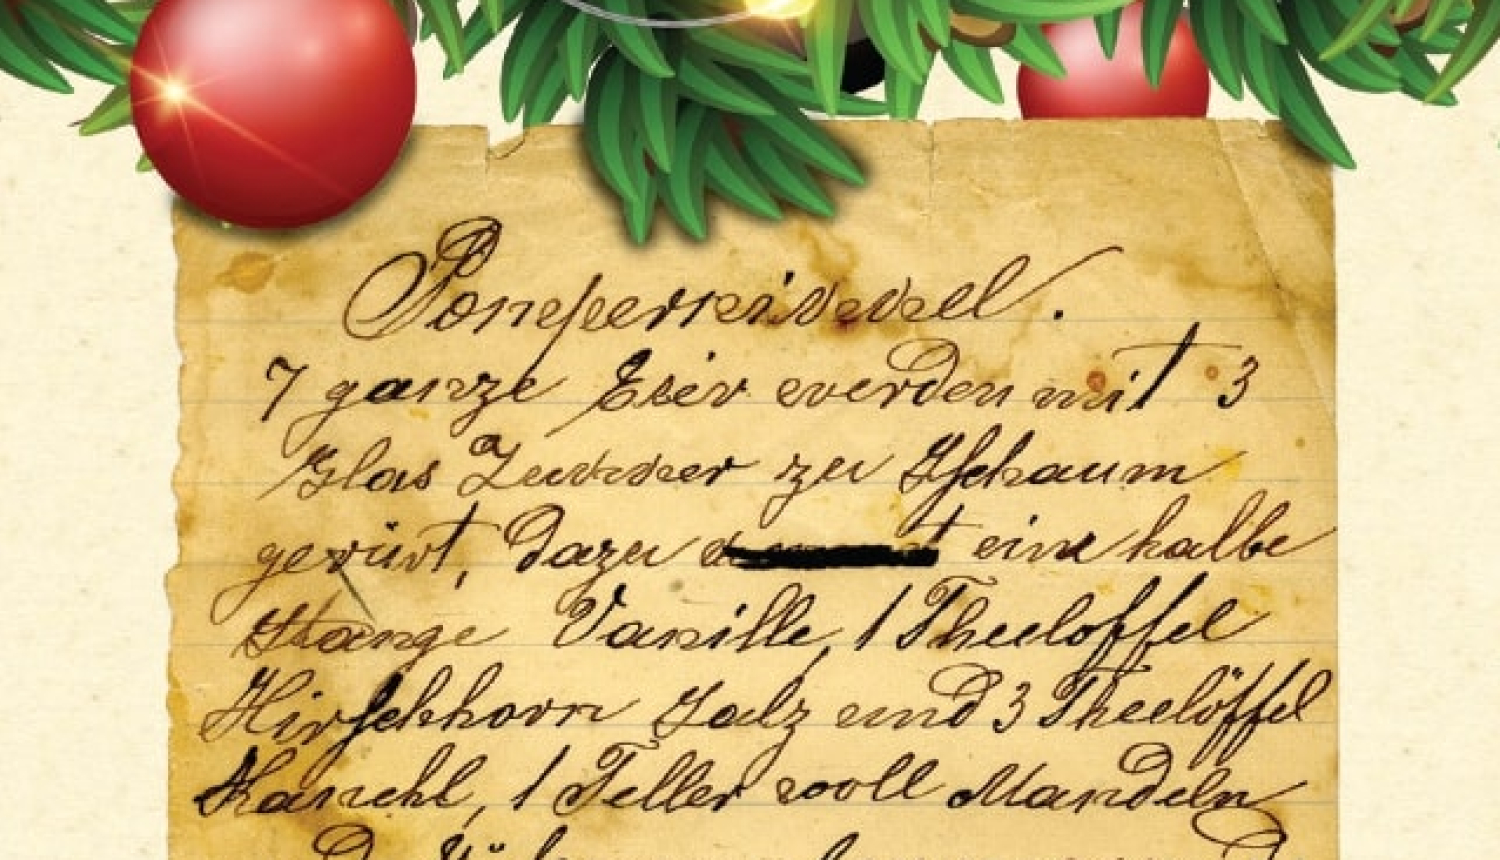 Pompernickel.
7 ganze Eier werden mit 3
Glas Zucker zu Schaum
gerürt, dazu eine halbe
Stange Vanille, 1 Theeloffel
Hirschhorn Salz und 3 Theelöffel
Kanehl, 1 Teller voll Mandeln